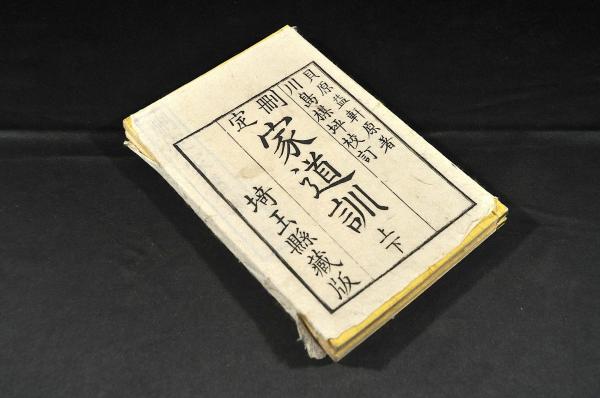 貝原益軒原著
川島楳坪校訂
刪定
家道訓
上下
埼玉縣藏版